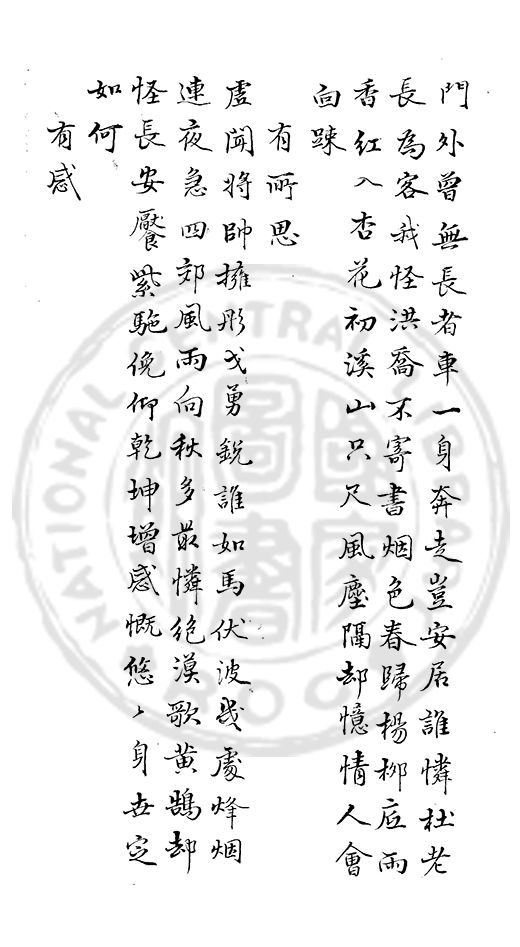 門外曾無長者車一身奔走豈安居誰憐杜老
長為客我怪洪喬不寄書烟色春歸楊柳底雨
香紅入杏花初溪山只尺風塵隔却憶情人會
面踈
有所思
虛聞將帥擁彤戈勇銳誰如馬伏波幾處烽烟
連夜急四郊風雨向秋多最憐絕漠歌黃鵠却
怪長安饜紫駞俛仰乾坤增感慨悠〻身世定
如何
有感
NATIONAL CENTRAL LIBRARY